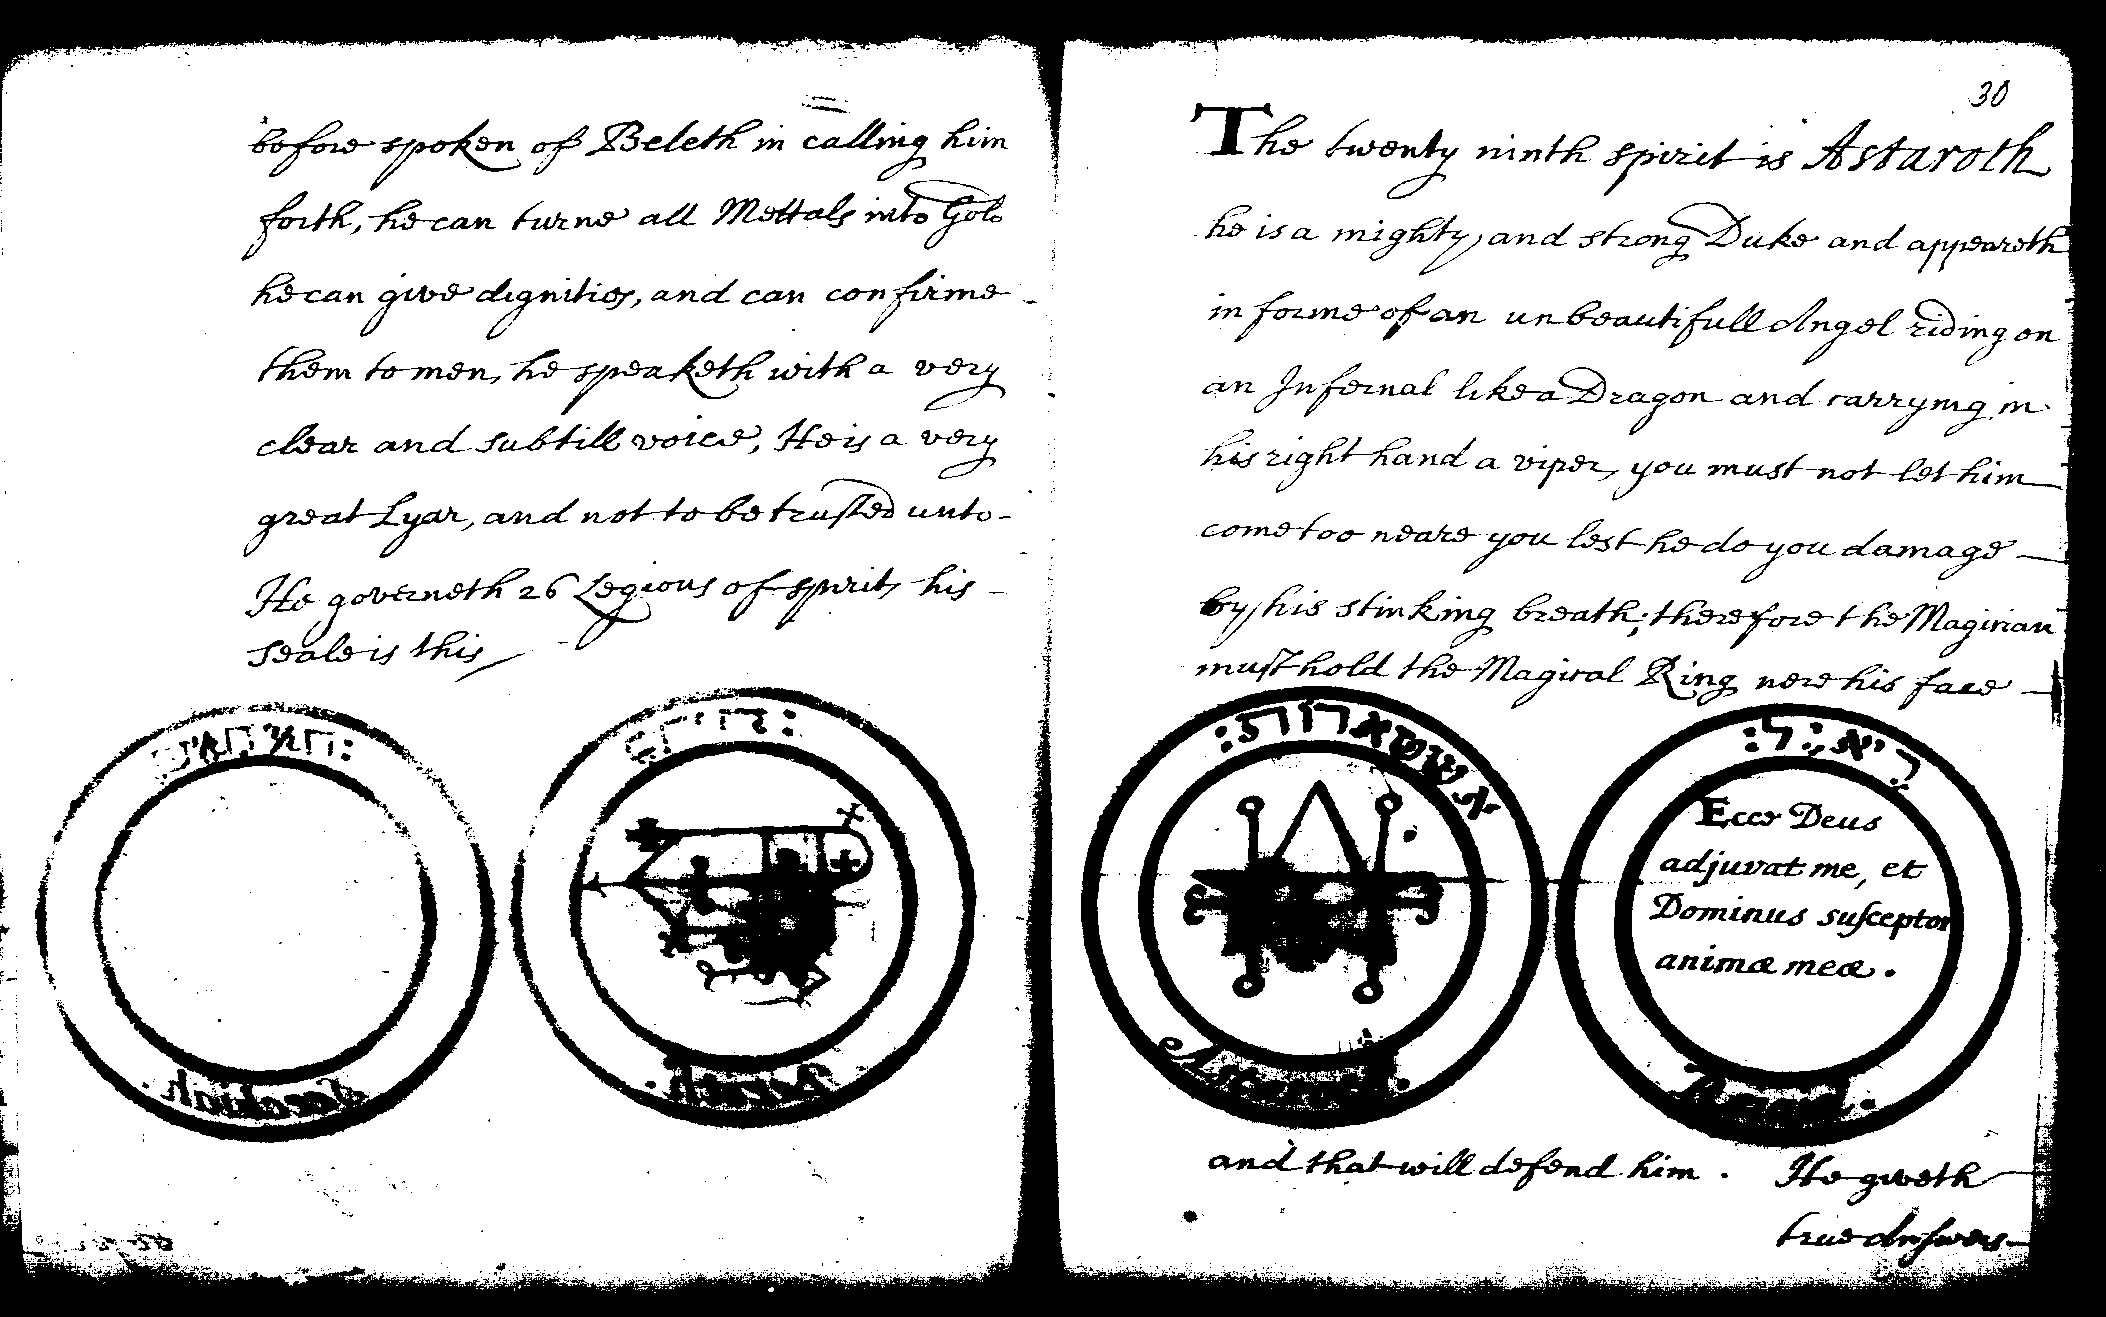 before spoken of Beleth in calling him
forth, he can turne all Mettals into Gold
he can give dignities, and can confirme
them to men, he speaketh with a very
clear and subtill voice, He is a very
great Lyar, and not to be trusted unto
He governeth 26 Legions of spirits his
seale is this
30
The twenty ninth spirit is Astaroth
he is a mighty, and strong Duke and appeareth
in forme of an unbeautifull Angel riding on
an Infernal like a Dragon and carrying in
his right hand a viper, you must not let him
come too neare you lest he do you damage
by his stinking breath; therefore the Magician
must hold the Magical Ring nere his face
:אששארות
Astaroth.
Ecce Deus
adjuvat me, et
Dominus susceptor
animæ meæ.
and that will defend him. He giveth
true Answers